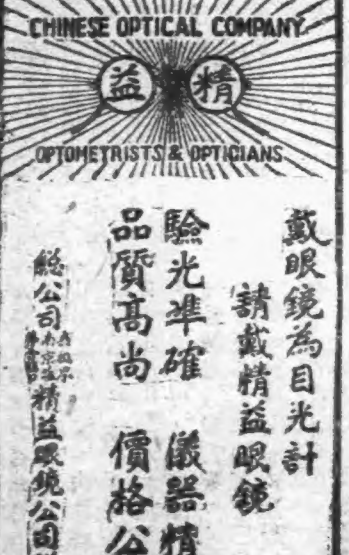 CHINESE OPTICAL COMPANY
精益
OPTOMETRISTS & OPTICIANS
戴眼鏡為目光計
請戴精益眼鏡
驗光準確 儀器精
品質高尚 價格公
總公司
精益眼鏡公司